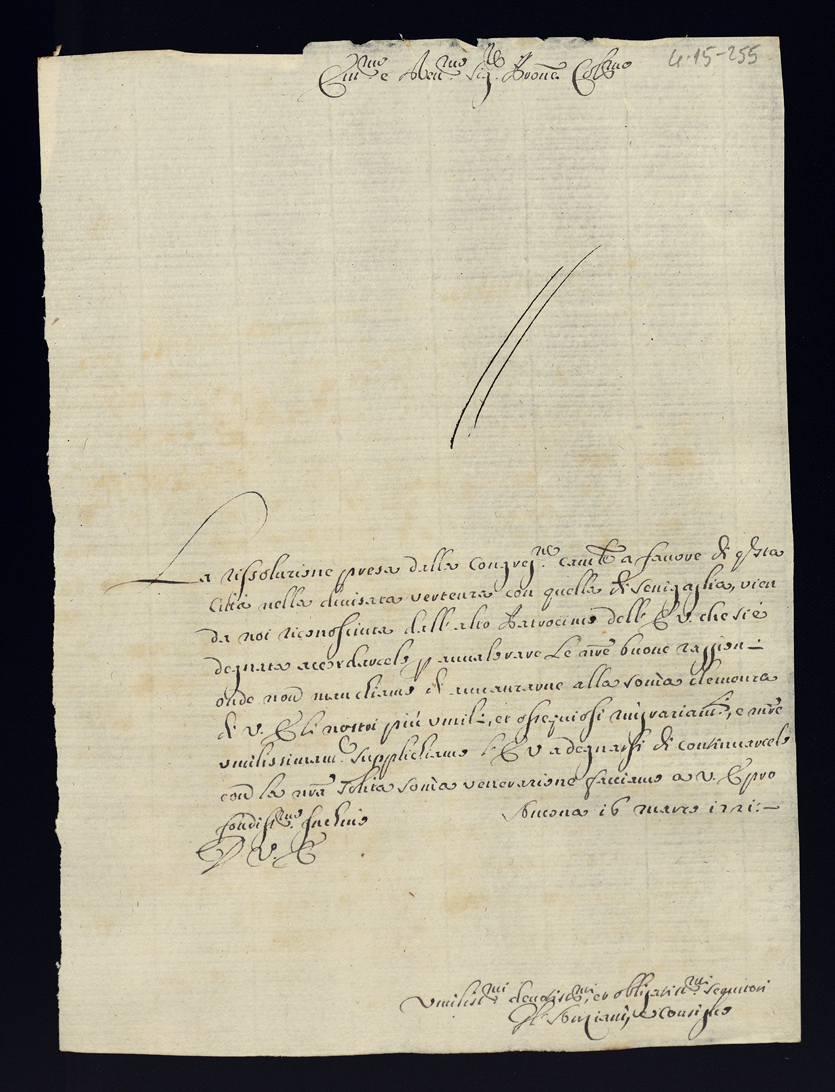 4·15-255
Em.mo e Reu.mo Sig.re Prone Col.mo
La rissoluzione presa dalla Congreg.ne Cam.le a fauore di q.sta
Città nella diuisata vertenza con quella di Senigaglia, vien
da noi riconosciuta dall'alto Patrocinio dell'E. V. che si è
degnata accordarcelo p aualorare le nr̃e buone raggioni
onde non manchiamo di auuanzarne alla som̃a clemenza
di V. E. li nostri più umili, et ossequiosi ringraziam.ti, e mẽre
umilissimam.te supplichiamo l'E. V. a degnarsi di continuarcelo
con la nr̃a solita som̃a venerazione facciamo a V. E. pro
fondiss.mo Inchino
Ancona 16 marzo 1721
D V. E.
Vmiliss.mi deuotiss.mi, et obligatiss.mi seruitori
Gl'Anziani, e Consiglio